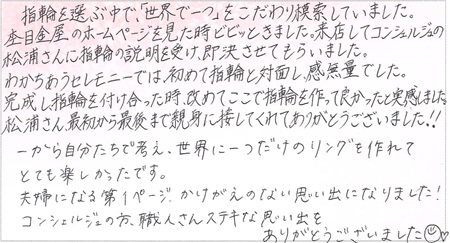 指輪を選ぶ中で、「世界で一つ」をこだわり模索していました。
杢目金屋のホームページを見た時ビビッときました。来店してコンシェルジュの
松浦さんに指輪の説明を受け、即決させてもらいました。
わかちあうセレモニーでは、初めて指輪と対面し、感無量でした。
完成し指輪を付け合った時、改めてここで指輪を作って良かったと実感しました。
松浦さん、最初から最後まで親身に接してくれてありがとうございました!!
一から自分たちで考え、世界に一つだけのリングを作れて
とても楽しかったです。
夫婦になる第1ページ、かけがえのない思い出になりました!
コンシェルジュの方、職人さんステキな思い出を
ありがとうございました